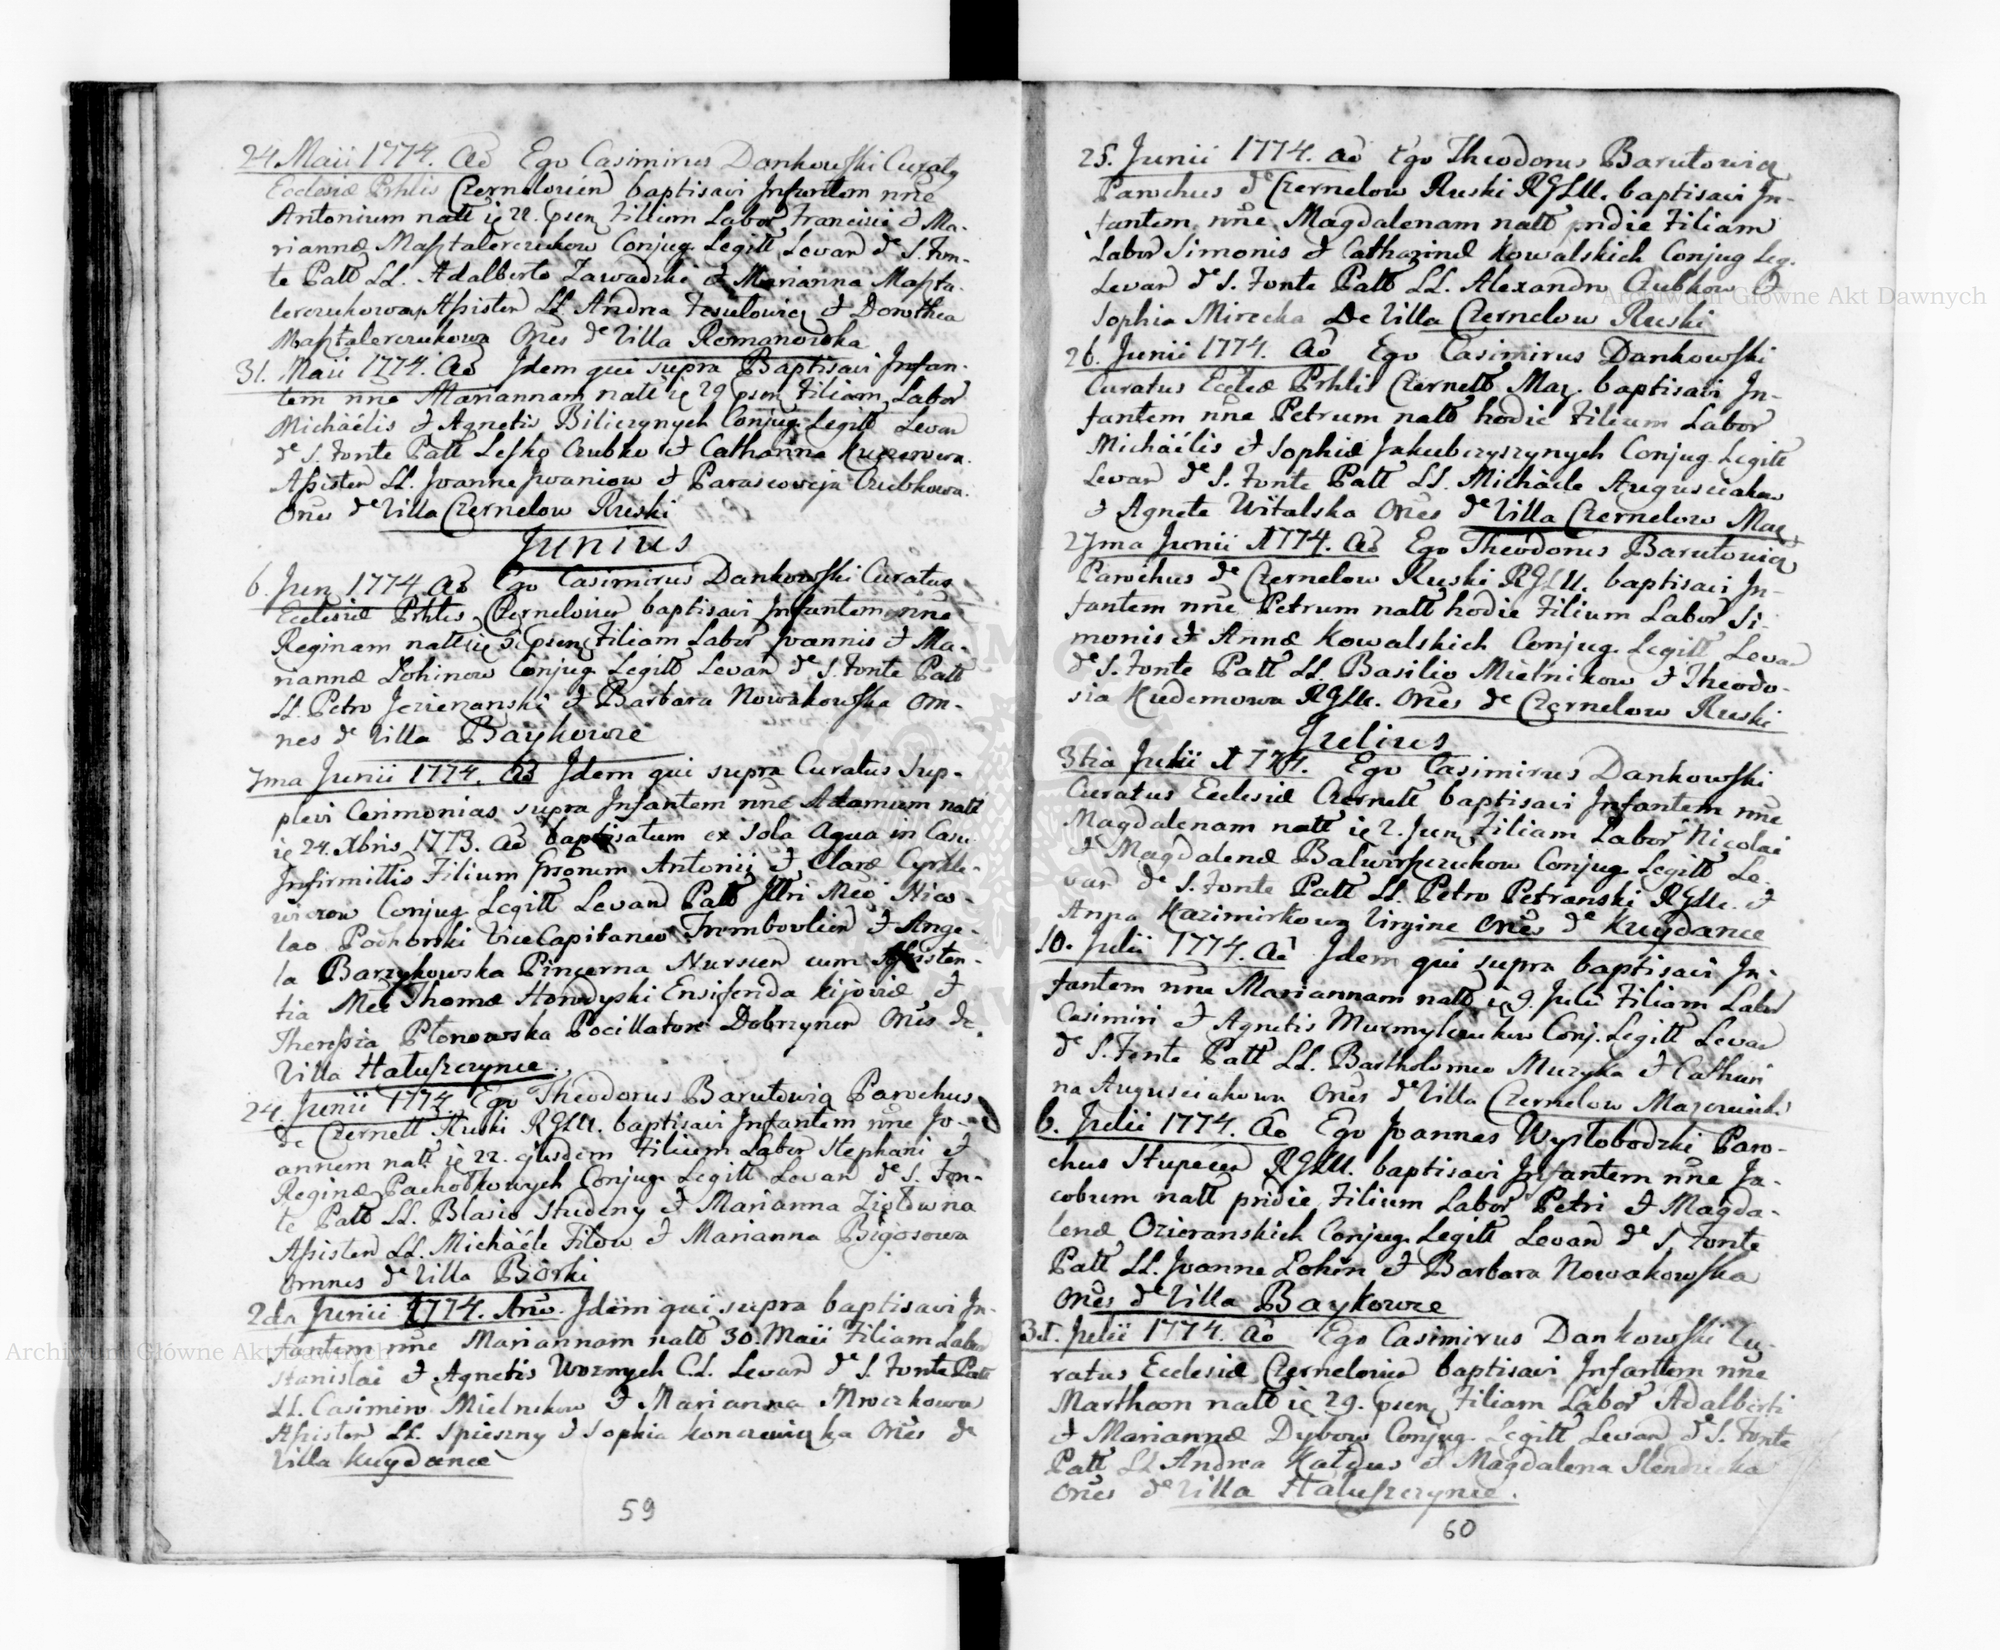 24 Maii 1774. Aō Ego Casimirus Dankowski Curatq
Ecclesiæ Prhlis Czernelovien baptisavi Infantem nn̄e
Antonium natt ię 22. psen Filium Labor Francisci et Ma-
riannæ Masztalerczukow Conjug Legitt Levan de S. Fon-
te Patt LL. Adalberto Zawadzki et Marianna Maszta-
lerczukowa Assisten LL Andrea Fesulowicz et Dorothea
Masztalerczukowa On̄es de Villa Romanowka
31. Maii 1774. Aō Idem qui supra Baptisavi Infan-
tem nn̄e Mariannam natt ię 29 psen Filiam Labor
Michäelis et Agnetis Biliczynych Conjug Legitt Levan
de S. Fonte Patt Lesko Czubko et Catharina
Assisten LL. Joanne Iwaniow et Parascevija Czubkowa.
On̄es de Villa Czernelow Ruski
Junius
6. Jun 1774 Aō Ego Casimirus Dankowski Curatus
Ecclesiæ Prhlis Czernelovien baptisavi Infantem nn̄e
Reginam natt ię 5 psen Filiam Labor Joannis et Ma-
riannæ Lohinow Conjug Legitt Levan de S. Fonte Patt
LL. Petro Jezieranski et Barbara Nowakowska om-
nes de Villa Baykowce
7ma Junii 1774. Aō Idem qui supra Curatus sup-
plevi Cerimonias supra Infantem nn̄e Adamum natt
ię 24. Xbris 1773. Aō baptisatum ex sola Aqua in Casu
Infirmittis Filium Antonii et Claræ Cyrkle-
wiczow Conjug Legitt Levan Patt Illri Mco Nico-
lao Podhorski ViceCapitaneo Trembovlien et Ange-
la Barzykowska Pincerna Nurscen cum Assisten-
tia Mci Thomæ Howdyski Ensiferida Kijoviæ et
Theressia Płonowska Pocillatore Dobrzynen On̄es de
Villa Hałuszczynce.
24. Junii 1774 Ego Theodorus Barutowicz Parochus
de Czernell Ruski RGLU. baptisavi Infantem nn̄e Jo-
annem natt ię 22. ejusdem Filium Labor Stephani et
Reginæ Pachołkowych Conjug Legitt Levan de S. Fon-
te Patt LL. Blasio Studzny et Marianna Ziołowna
Assisten LL. Michäele Filow et Marianna Bigosowa
Omnes de Villa Borki
2da Junii 1774. Anō. Idem qui supra baptisavi In-
fantem nn̄e Mariannam natt 30. Maii Filiam Labor
Stanislai et Agnetis Woznych C.L. Levan de S. Fonte Patt
LL. Casimiro Mielnikow et Marianna Mroczkowa
Assisten LL. Spieszny et Sophia Konczewiczka On̄es de
Villa Kuydance
59
25. Junii 1774. Aō Ego Theodorus Barutowicz
Parochus de Czernelow Ruski RGLU. baptisavi In-
fantem nn̄e Magdalenam natt pridie Filiam
Labor Simonis et Catharinæ Kowalskich Conjug Leg.
Levan de S. Fonte Patt LL. Alexandro Czubkow et
Sophia Mirecka De Villa Czernelow Ruski
26. Junii 1774. Aō Ego Casimirus Dankowski
Curatus Eccleæ Prhlis Czernell Maz. baptisavi In-
fantem nn̄e Petrum natt hodie Filium Labor
Michäelis et Sophiæ Jakubczyszynych Conjug Legitt
Levan de S. Fonte Patt LL. Michäele Augusciakow
et Agnete Witalska On̄es de Villa Czernelow Maz
27ma Junii 1774. Aō Ego Theodorus Barutowicz
Parochus de Czernelow Ruski RGLU. baptisavi In-
fantem nn̄e Petrum natt hodie Filium Labor Si-
monis et Annæ Kowalskich Conjug. Legitt Levan
de S. Fonte Patt LL. Basilio Mielnikow et Theodo-
sia Kudemowa RGLU. On̄es de Czernelow Ruski
Julius
3tia Julii 1774. Ego Casimirus Dankowski
Curatus Ecclesiæ Czernell baptisavi Infantem nn̄e
Magdalenam natt ię 2. Jun Filiam Labor Nicolai
et Magdalenæ Balwirszczukow Conjug Legitt Le-
van de S. Fonte Patt LL. Petro Petranski RGLU. et
Anna Kazimirkowa Virgine On̄es de Kuydance
10. Julii 1774. Aō Idem qui supra baptisavi In-
fantem nn̄e Mariannam natt ię 9. Julii Filiam Labor
Casimiri et Agnetis Murmylczukow Conj. Legitt Levan
de S. Fonte Patt LL. Bartholomeo Muzyka et Cathari
na Augusciakowa On̄es de Villa Czernelow Mazowiecki
6. Julii 1774. Aō Ego Joannes Wysłobodzki Paro-
chus Stupecen RGLU. baptisavi Infantem nn̄e Ja-
cobum natt pridie Filium Labor Petri et Magda-
lenæ Ozieranskich Conjug Legitt Levan de S Fonte
Patt LL. Joanne Lohin et Barbara Nowakowska
On̄es de Villa Baykowce
31. Julii 1774. Aō Ego Casimirus Dankowski Cu-
ratus Ecclesiæ Czernelovien baptisavi Infantem nn̄e
Martham natt ię 29. psen Filiam Labor Adalberti
et Mariannæ Dybow Conjug Legitt Levan de S. Fonte
Patt LL Andrea Kałdus et Magdalena Slendzicka
On̄es de Villa Hałuszczynce.
60
Archiwum Główne Akt Dawnych
Archiwum Główne Akt Dawnych